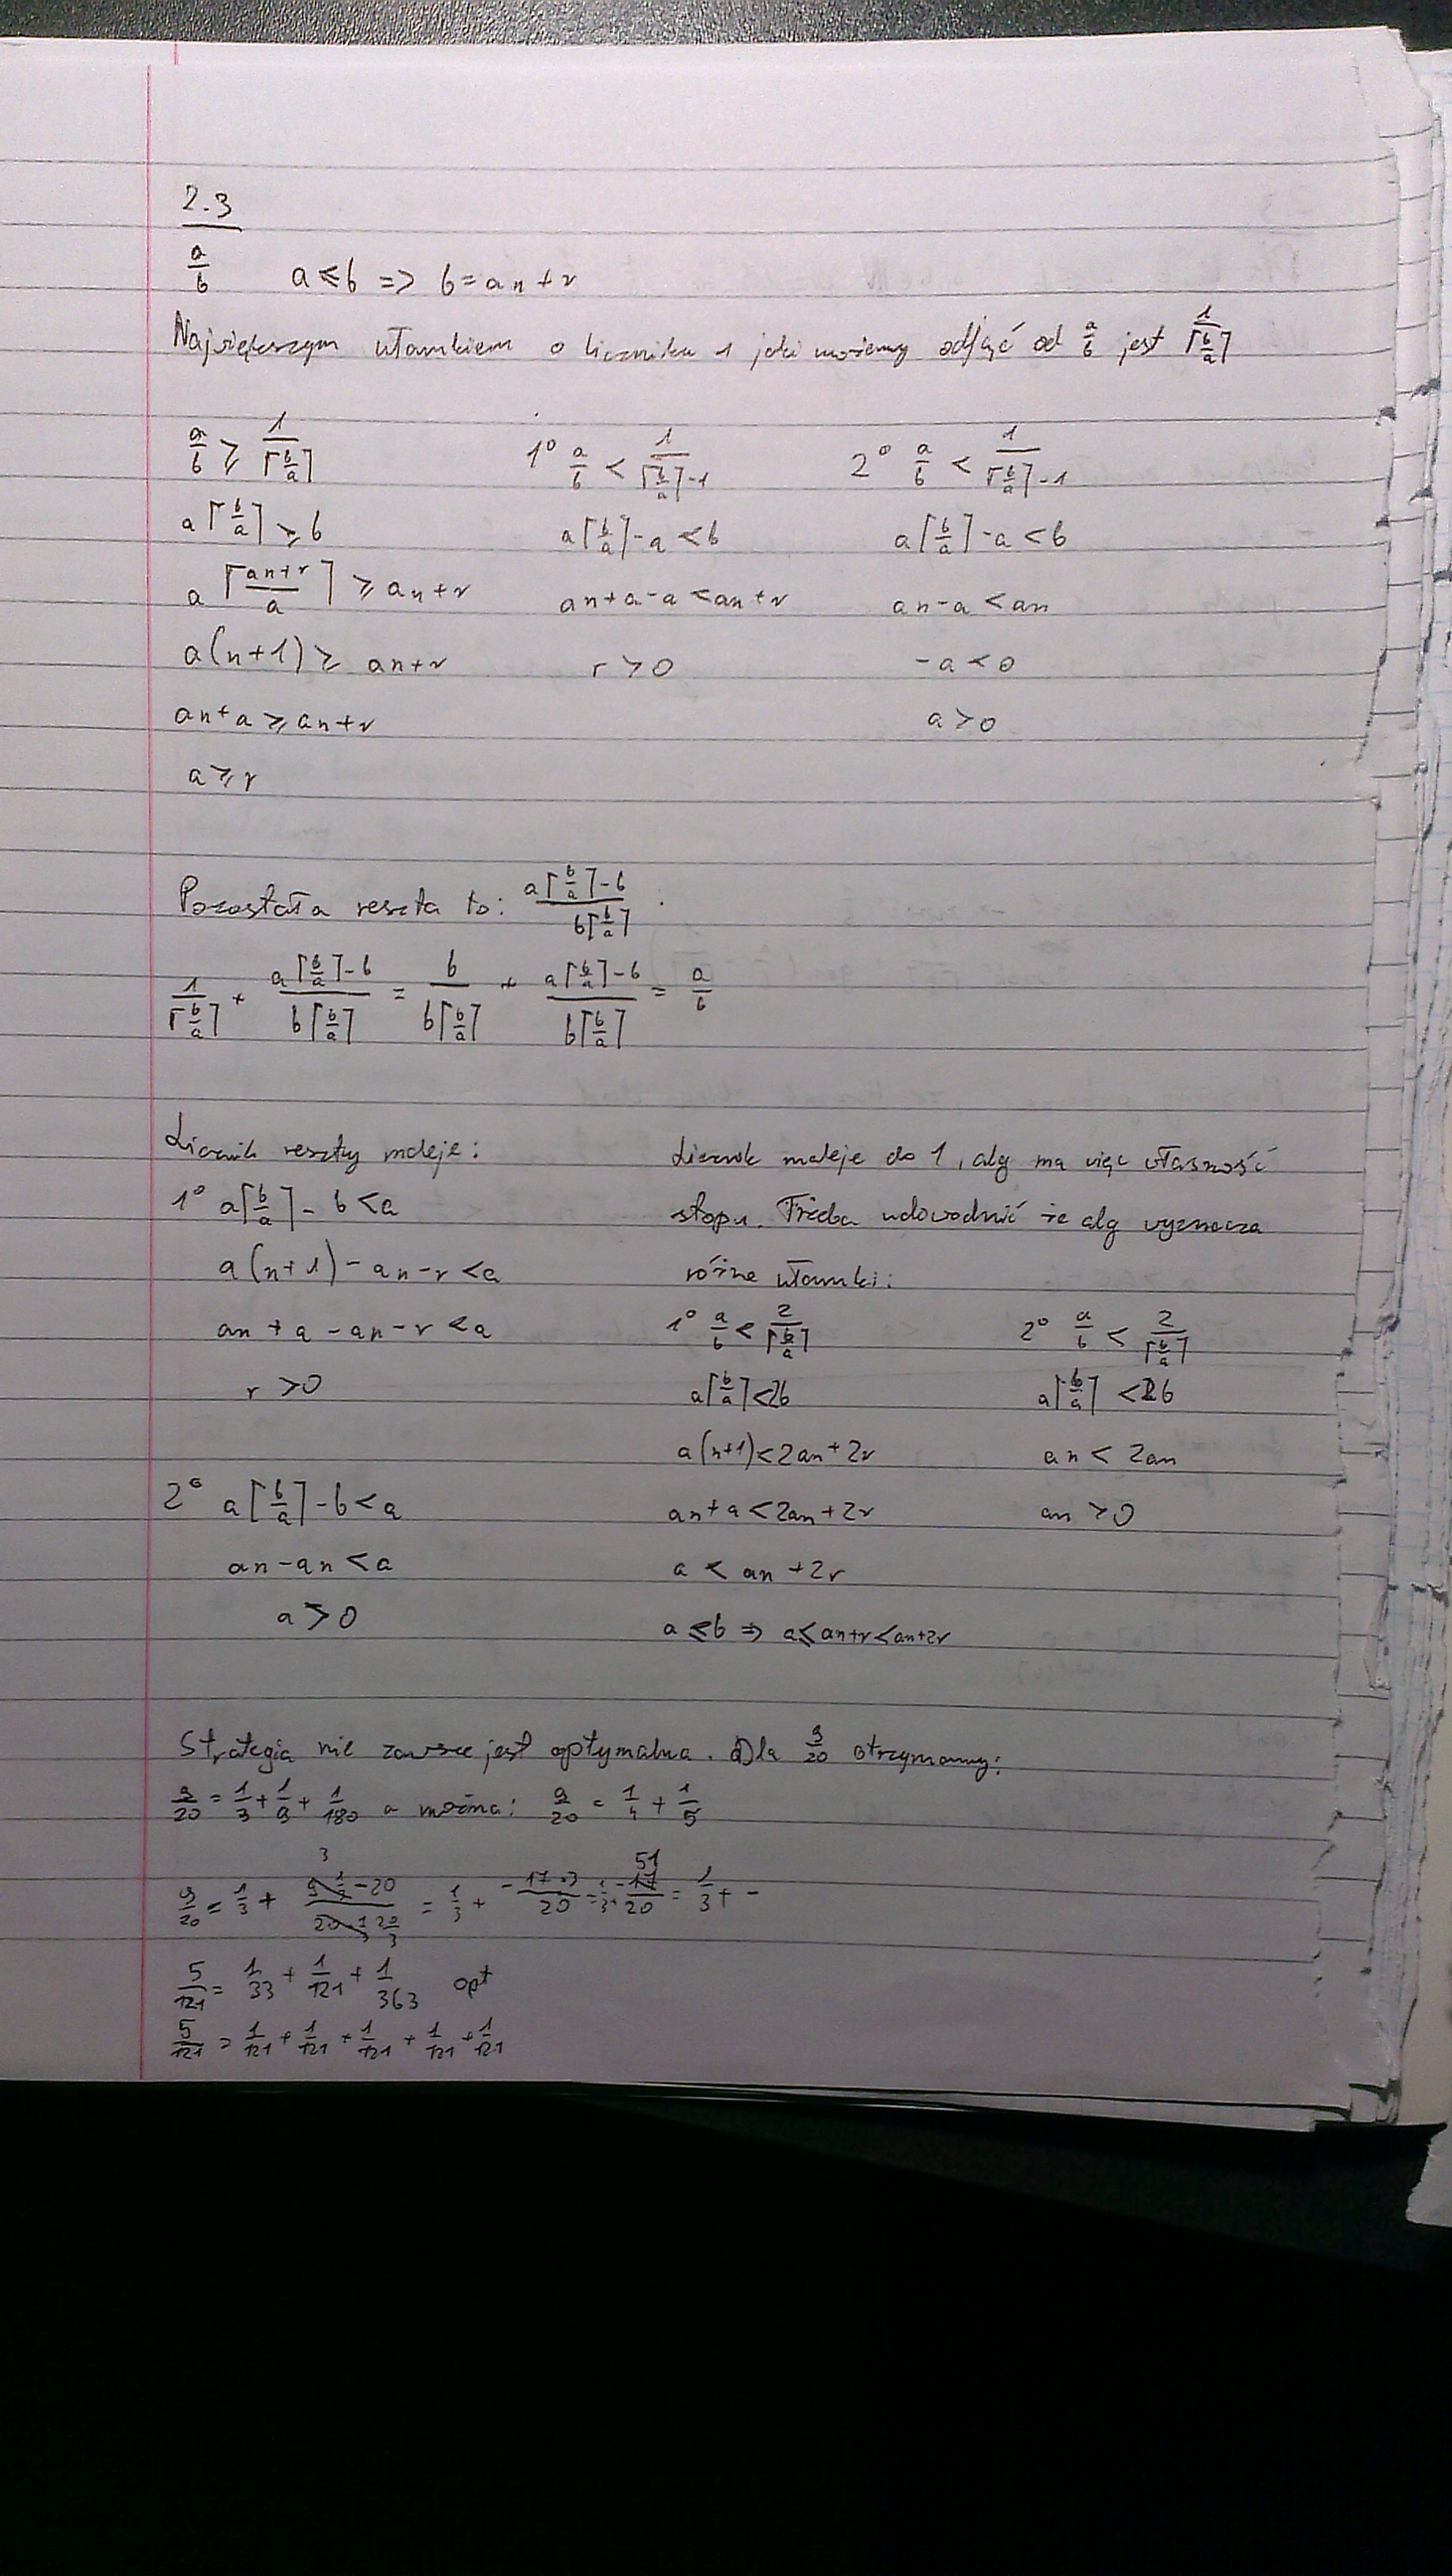 2.3
a/b a ≤ b => b = an + r
Największym ułamkiem o liczniku 1 jaki możemy odjąć od a/b jest 1/⌈b/a⌉
a/b ≥ 1/⌈b/a⌉ 1° a/b < 1/(⌈b/a⌉-1) 2° a/b < 1/(⌈b/a⌉-1)
a⌈b/a⌉ ≥ b a⌈b/a⌉-a < b a⌈b/a⌉-a < b
a⌈(an+r)/a⌉ ≥ an+r an+a-a < an+r an-a < an
a(n+1) ≥ an+r r > 0 -a < 0
an+a ≥ an+r a > 0
a ≥ r
Pozostała reszta to: (a⌈b/a⌉-b)/(b⌈b/a⌉)
1/⌈b/a⌉ + (a⌈b/a⌉-b)/(b⌈b/a⌉) = b/(b⌈b/a⌉) + (a⌈b/a⌉-b)/(b⌈b/a⌉) = a/b
Licznik reszty maleje:
1° a⌈b/a⌉ - b < a
a(n+1) - an - r < a
an + a - an - r < a
r > 0
2° a⌈b/a⌉ - b < a
an - an < a
a > 0
Licznik maleje do 1, alg ma więc własność
stopu. Trzeba udowodnić że alg wyznacza
różne ułamki:
1° a/b < 2/⌈b/a⌉ 2° a/b < 2/⌈b/a⌉
a⌈b/a⌉ < 2b a⌈b/a⌉ < 2b
a(n+1) < 2an + 2r an < 2an
an + a < 2an + 2r an > 0
a < an + 2r
a ≤ b => a ≤ an+r < an+2r
Strategia nie zawsze jest optymalna. Dla 9/20 otrzymamy:
9/20 = 1/3 + 1/9 + 1/180 a można: 9/20 = 1/4 + 1/5
9/20 = 1/3 +
5/121 = 1/33 + 1/121 + 1/363 opt
5/121 = 1/121 + 1/121 + 1/121 + 1/121 + 1/121